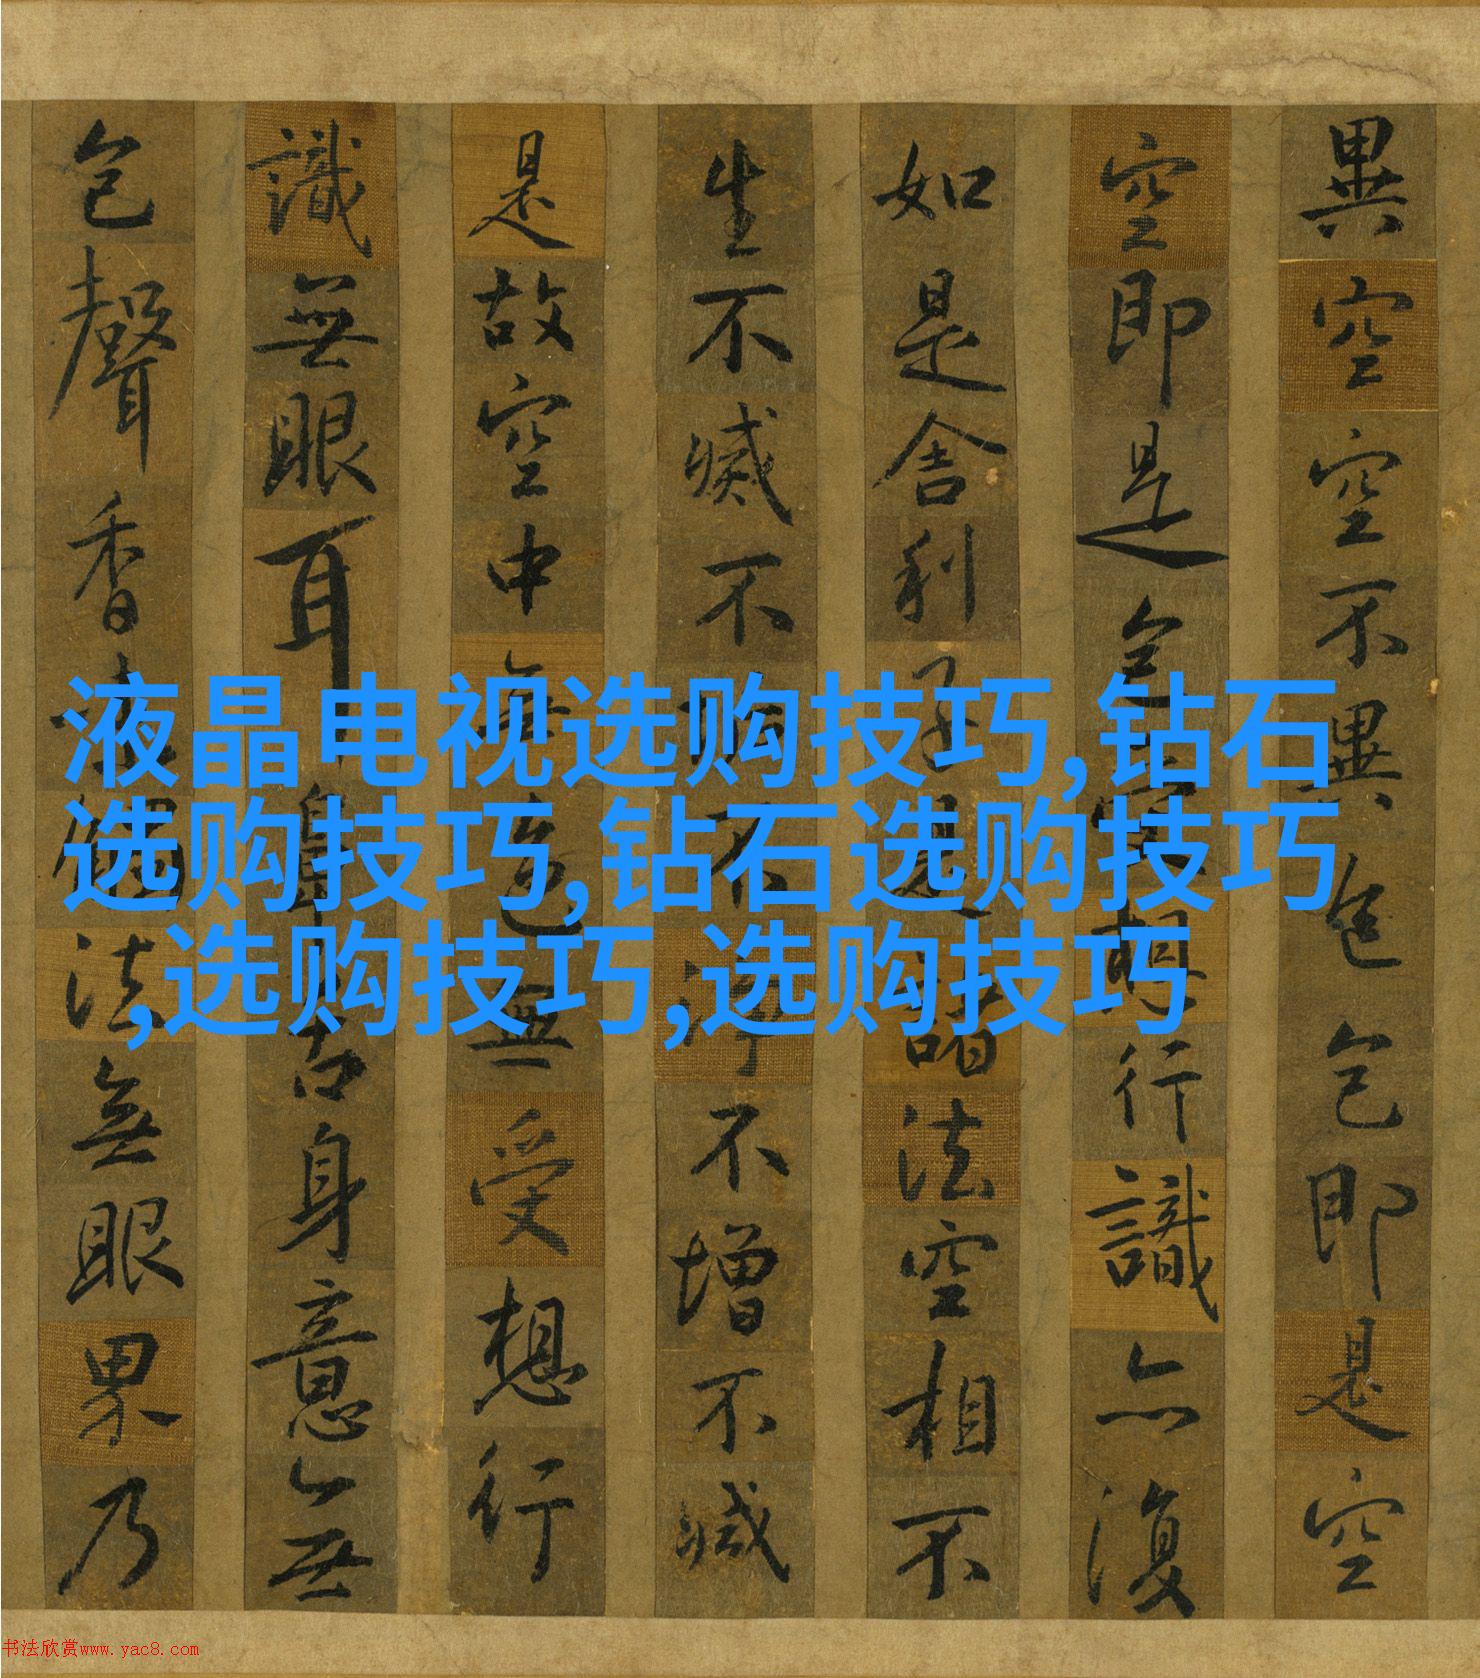 異空空不異色色即是空
空即是色受想行識亦復
如是舍利子是諸法空相不
生不滅不垢不淨不增不減
是故空中無色無受想行
識無眼耳鼻舌身意無
色聲香味觸法無眼界乃
液晶电视选购技巧,钻石
选购技巧,钻石选购技巧
,选购技巧,选购技巧
书法欣赏www.yac8.com